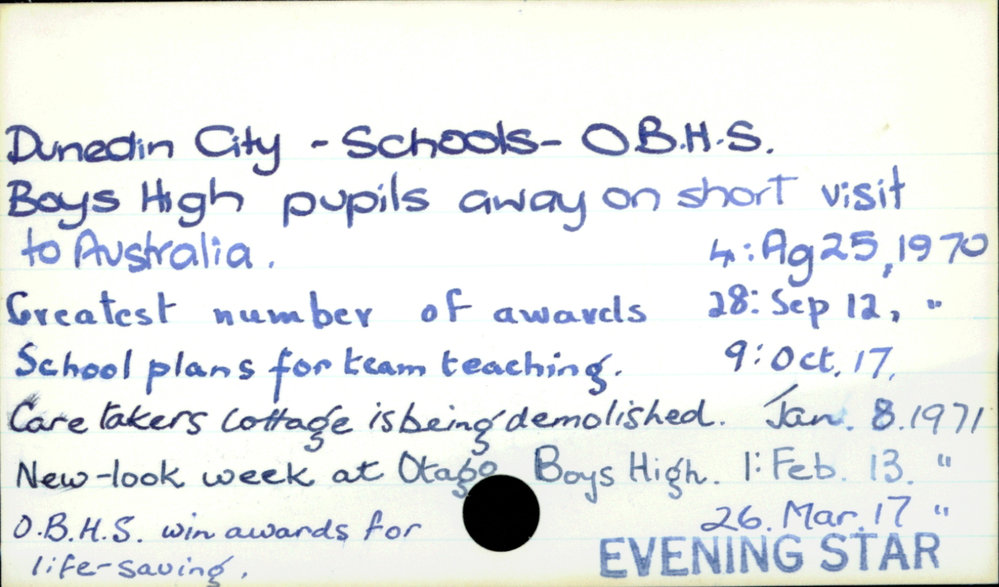 Dunedin City - Schools - O.B.H.S.
Boys High pupils away on short visit
to Australia. 4: Ag 25, 1970
Greatest number of awards 28: Sep 12, "
School plans for team teaching. 9: Oct. 17.
Caretakers cottage is being demolished. Jan. 8. 1971
New-look week at Otago Boys High. 1: Feb. 13. "
O.B.H.S. win awards for 26. Mar. 17 "
life-saving.
EVENING STAR